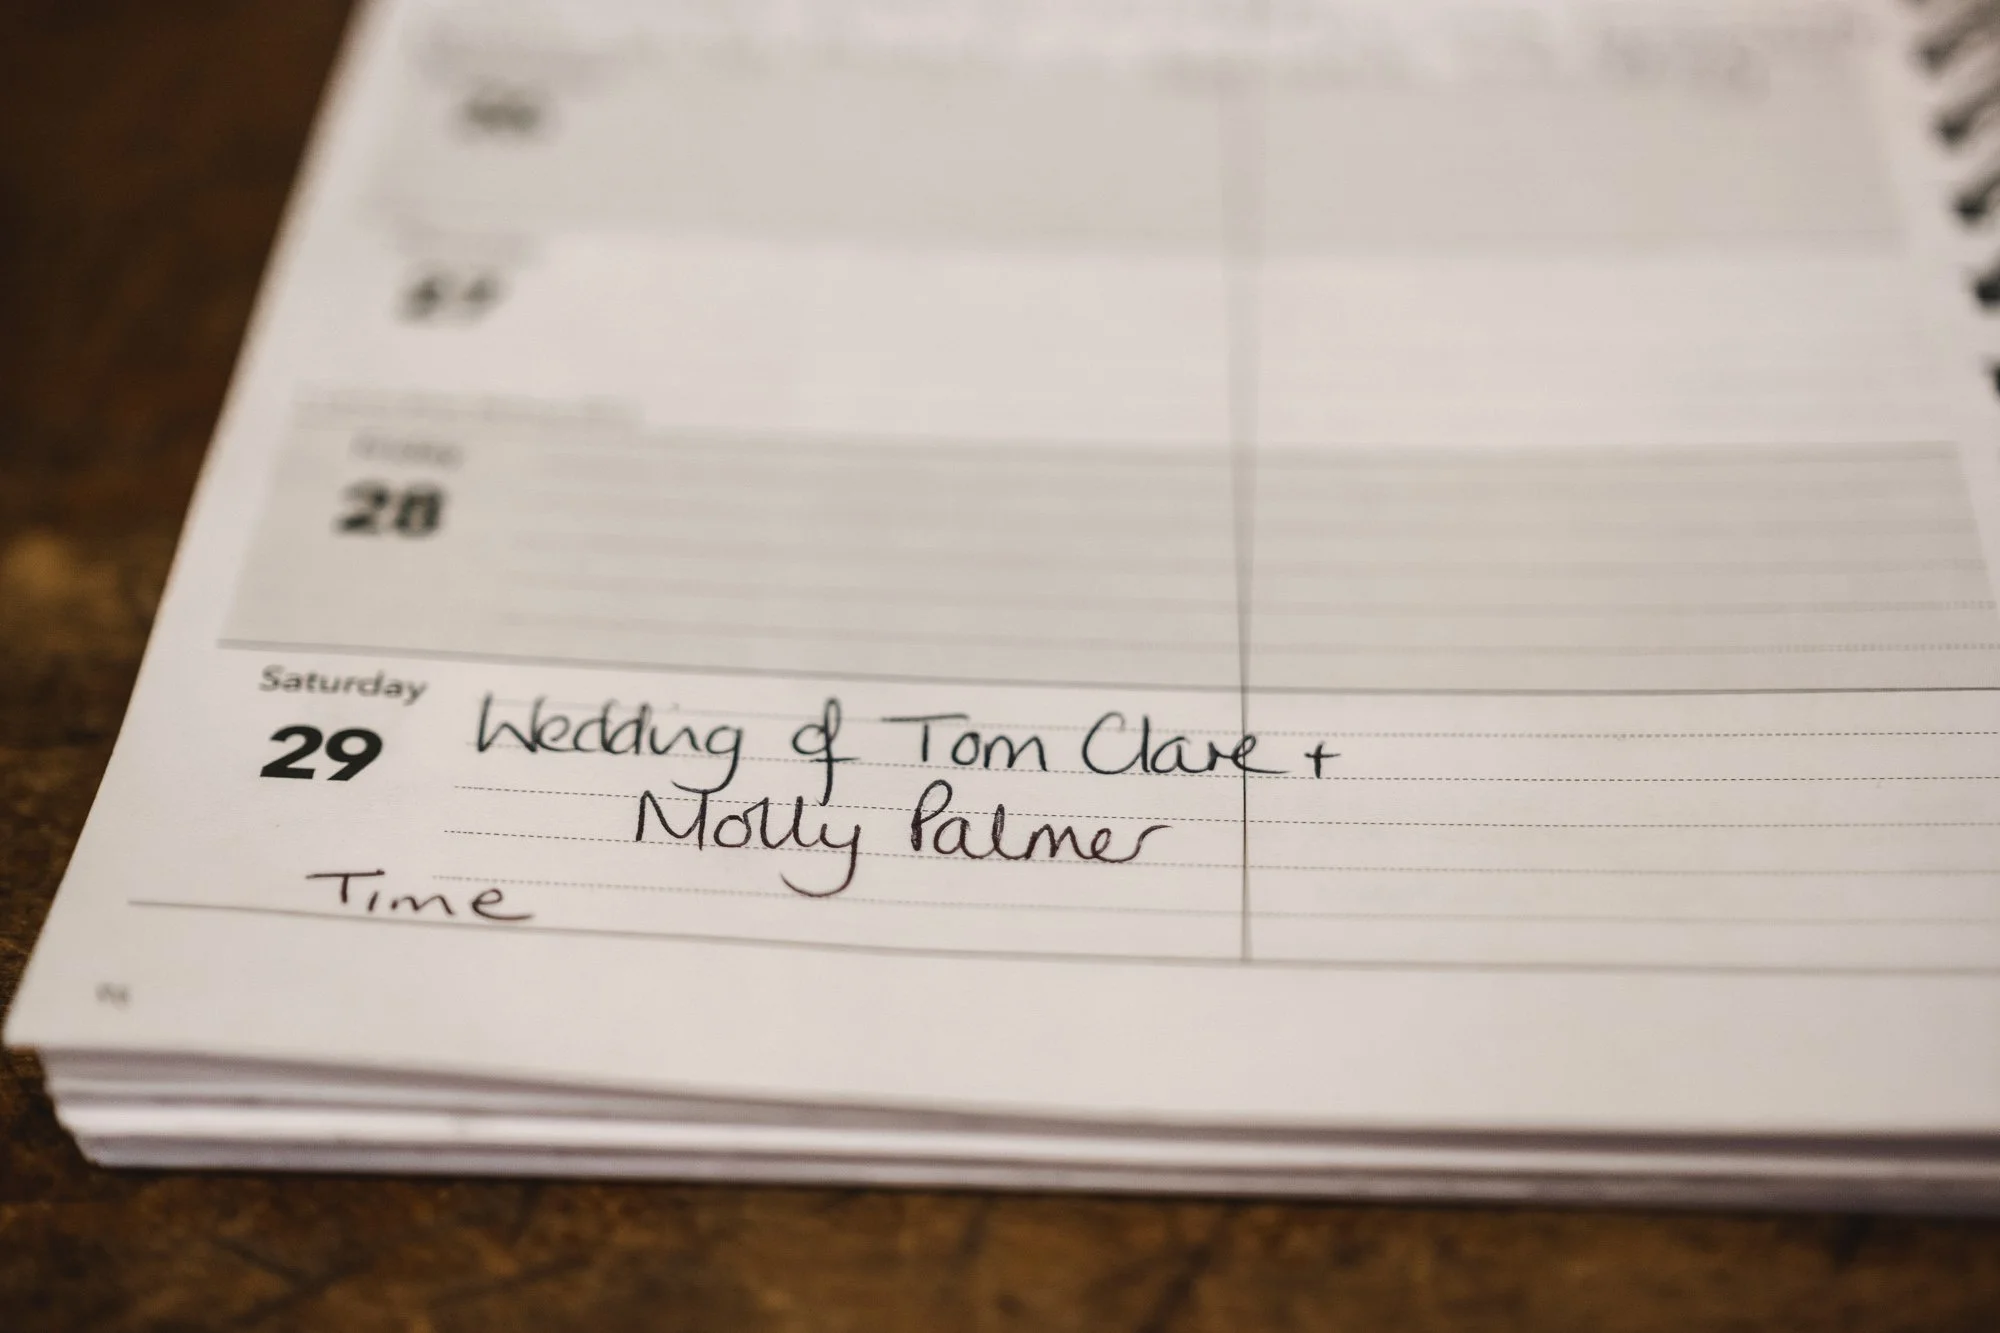 27
28
Saturday
29
Wedding of Tom Clare +
Molly Palmer
Time